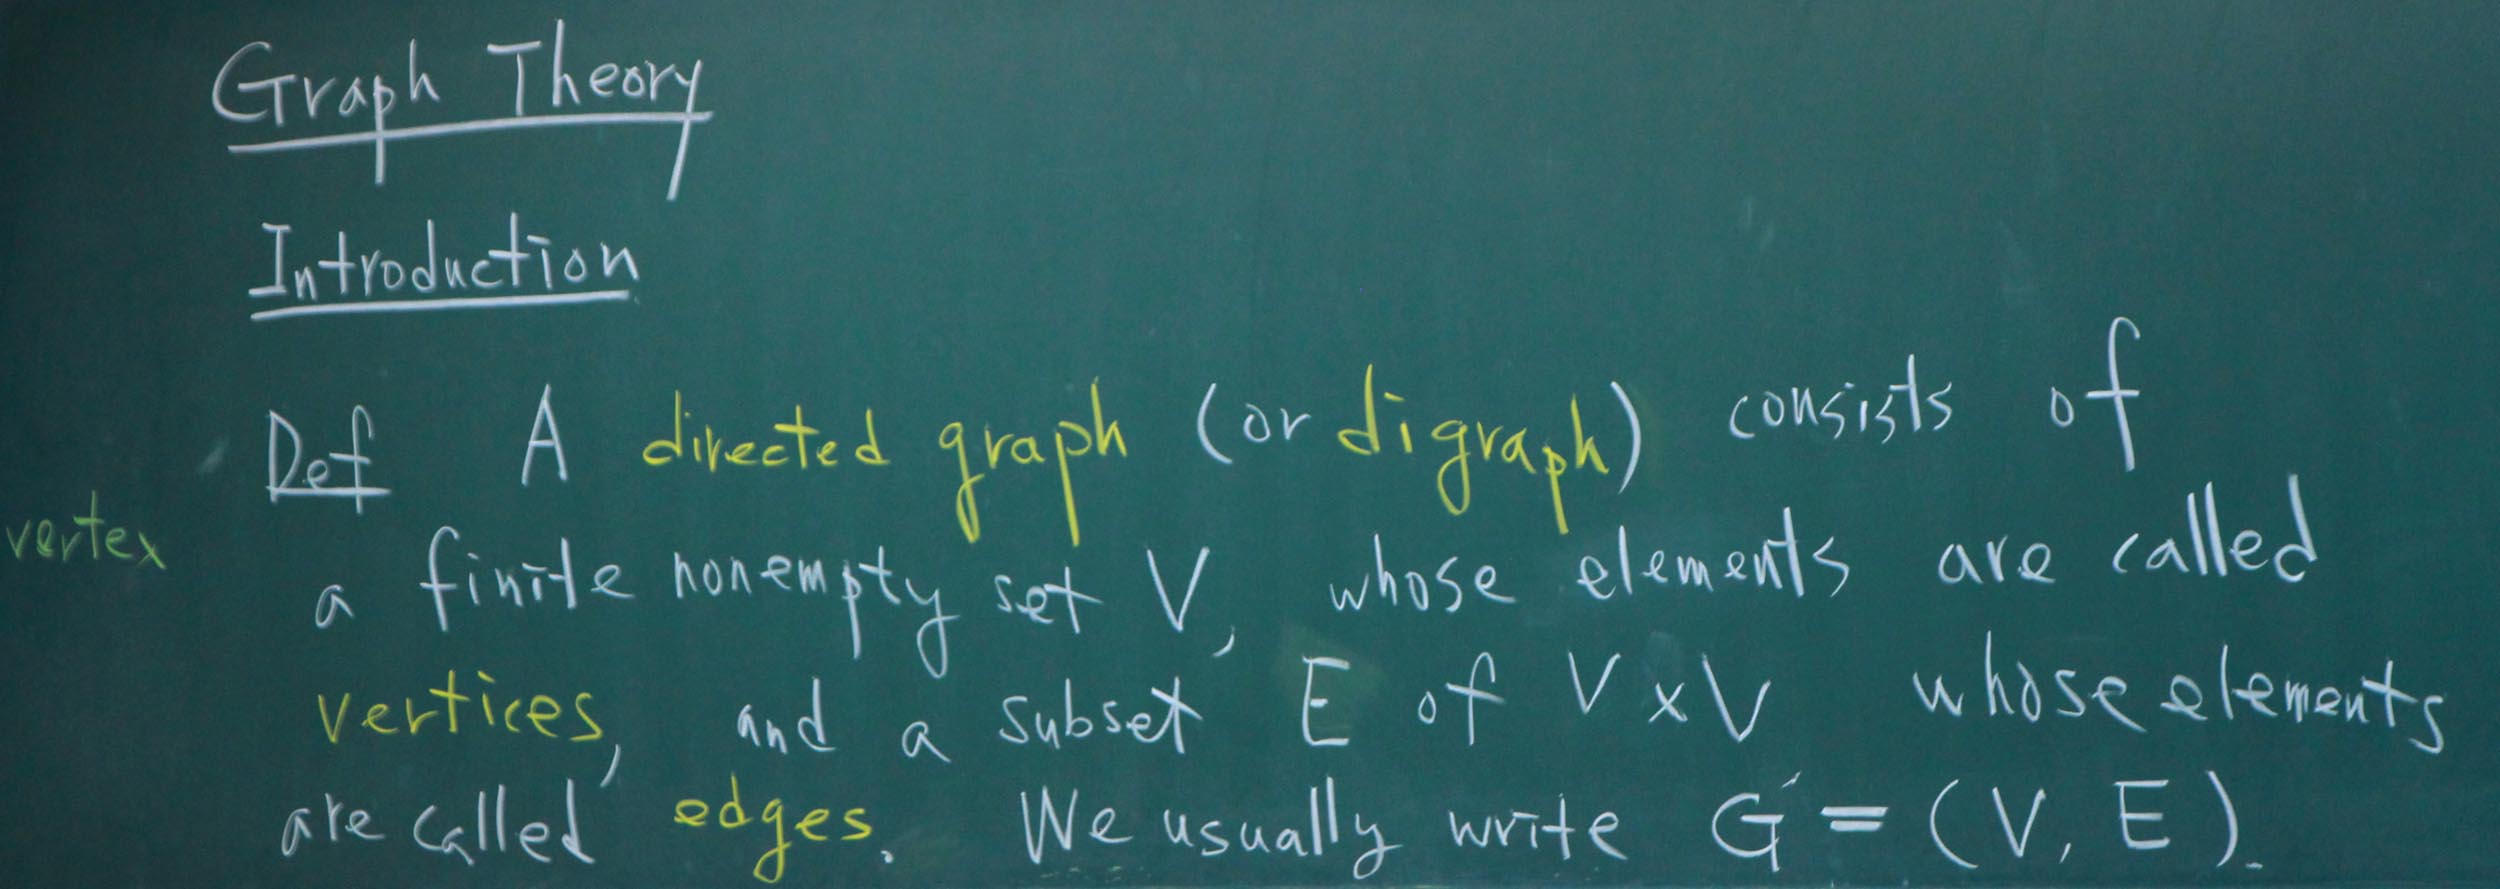 Graph Theory
Introduction
Def A directed graph (or digraph) consists of
vertex
a finite nonempty set V, whose elements are called
vertices, and a subset E of V × V whose elements
are called edges. We usually write G = (V, E).